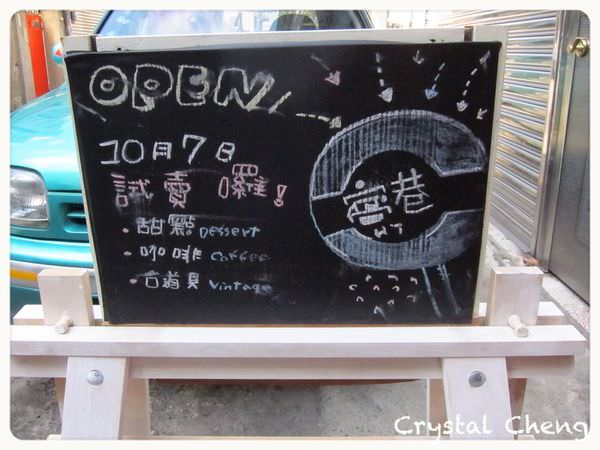 OPEN
10月7日
試賣囉!
•甜點 Dessert
•咖啡 Coffee
•古道具 Vintage
巷
Crystal Cheng